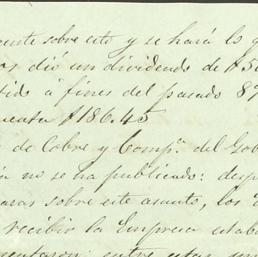 ente sobre esto y se hará lo q
os dió un dividendo de $50
tido á fines del pasado 87
uenta $186.45
de Cobre y Compª. del Gob
ía no se ha publicado: desp
aras sobre este asunto, los
recibir la Empresa estab
entaron: entre estas un